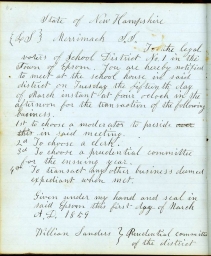 State of New Hampshire
{L.S.} Merrimack SS.
To the legal
voters of School District No 1 in the
Town of Epsom. You are hereby notified
to meet at the school house in said
district on Tuesday the fifteenth day
of March instant at four oclock in the
afternoon for the transaction of the following
business.
1st to choose a moderator to preside
in said meeting.
2d To choose a clerk.
3d To choose a prudential committee
for the ensuing year.
4th To transact any other business deemed
expediant when met.
Given under my hand and seal in
said Epsom this first day of March
A.D. 1859
William Sanders } Prudential committee
of the district